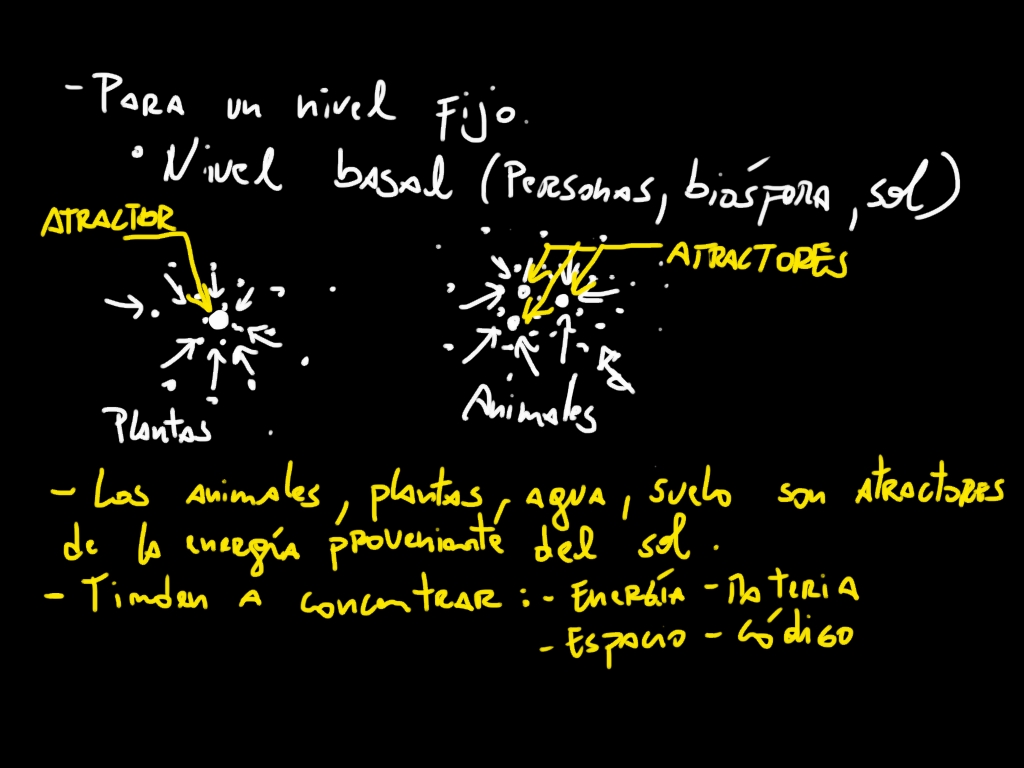 - PARA un nivel FIJO.
• Nivel basal (Personas, biósfora, sol)
ATRACTOR
ATRACTORES
Plantas
Animales
- Los animales, plantas, agua, suelo son ATRACTORES
de la energía proveniante del sol.
- Tienden A concentrar: - ENERGÍA - MATERIA
- ESPACIO - CÓDIGO